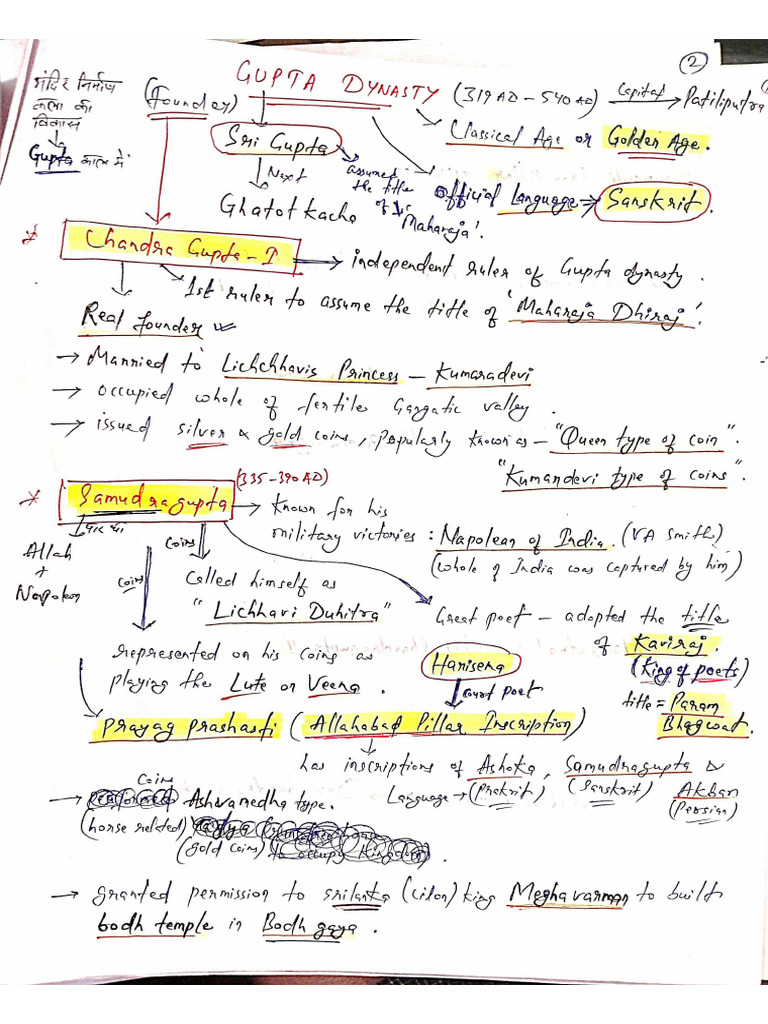 (2)
GUPTA DYNASTY (319 AD – 540 AD) Capital → Patiliputra
मंदिर निर्माण
कला का
विकास
↓
Gupta काल में
(Founder)
→ Classical Age or Golden Age.
Sri Gupta → assumed the title of 'Maharaja'.
official Language ⇒ Sanskrit.
↓ Next
Ghatotkacha
* Chandra Gupta - I → independent ruler of Gupta dynasty.
→ 1st ruler to assume the title of 'Maharaja Dhiraj'.
Real founder
→ Married to Lichchhavis Princess – Kumaradevi
→ occupied whole of fertile Gangatic valley.
→ issued silver & gold coins, popularly known as – "Queen type of coin".
"Kumandevi type of coins".
* Samudragupta (335-390 AD) → Known for his
military victories : Napolean of India. (VA Smith)
(whole of India was captured by him)
Allah
+
Napolean
coins
Called himself as
"Lichhavi Duhitra"
Great poet – adopted the title
of Kaviraj.
(King of poets)
title = Param
Bhagwat.
coins
represented on his coins as
playing the Lute or Veena.
Harisena
↓ court poet
Prayag prashasti (Allahabad Pillar Inscription)
↓
has inscriptions of Ashoka, Samudragupta &
Akbar
Language → (Prakrit) (Sanskrit) (Persian)
coins
→ Ashvamedha type.
(horse related)
(gold coins)
→ granted permission to srilanka (cilon) king Meghavarman to built
bodh temple in Bodh gaya.